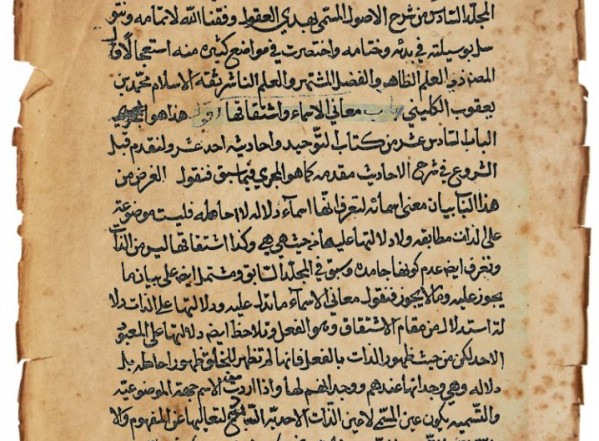 المجلد السادس من شرح الاصول المسمى بهدي العقول وفقنا الله لاتمامه ونتو
سل بوسيلته في بدئه وختامه واختصرت في مواضع كثيرة منه استعجالا
العلم الظاهر والفضل المشتهر والعلم الناشر ثقة الاسلام محمد بن
يعقوب الكليني باب معاني الاسماء واشتقاقها اقول هذا هو
الباب السادس عشر من كتاب التوحيد واحاديثه احد عشر ولنقدم قبل
الشروع في شرح الاحاديث مقدمه كما هو المجرى فيما سبق فنقول الغرض من
هذا الباب بيان معنى اسمائه لتعرف انها اسماء دلاله لا احاطه فليست موضوعة
على الذات مطابقه ولا دلالتها عليها من حيث هي هي وكذا اشتقاقها ليس من الذات
وتعرف ايضا عدم كونها جامدة وسبق في المجلد السابق ومشتمل ايضا على بيان ما
يجوز عليه وما لا يجوز فنقول معاني الاسماء ما تدل عليه ودلالتها على الذات دلا
لة استدلال من مقام الاشتقاق وهو الفعل وتلاحظ ايضا دلالتها على المعبود
الاحد لكن من حيث ظهور الذات بالفعل فانها لم تظهر للخلق ظهور احاطه بل
دلاله وهي وجدانها عندهم ووجدانهم لها واذا اردت من الاسم جهة الموضوعيه
والتسميه يكون عين المسمى لا عين الذات الاحديه لتعاليها عن المفهوم والا